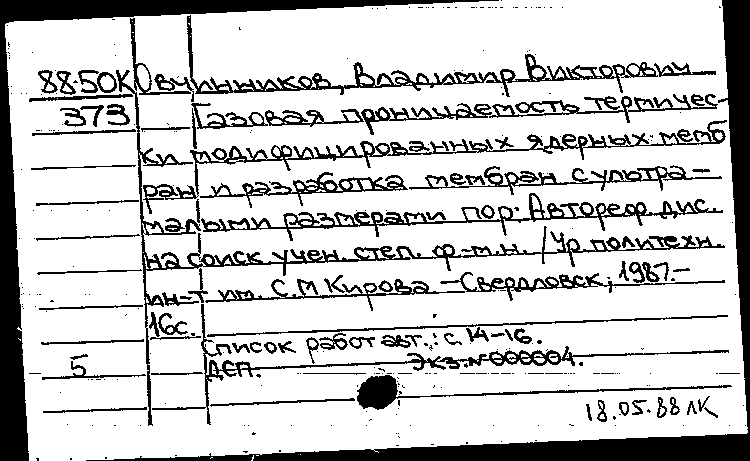 88-50К Овчинников, Владимир Викторович
373 Газовая проницаемость термичес-
ки модифицированных ядерных мемб
ран и разработка мембран с ультра-
малыми размерами пор: Автореф. дис.
на соиск учен. степ. ф.-м.н. / Ур политехн.
ин-т им. С.М Кирова - Свердловск, 1987.-
16с.
Список работ авт.: с. 14-16.
5 ДСП. Экз. № 000004.
18.05.88 ЛК